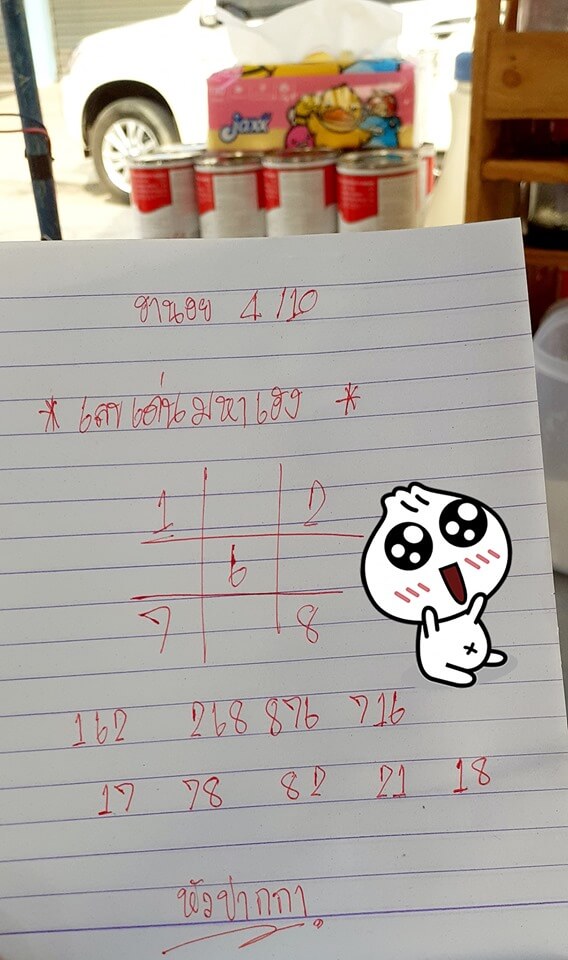 jaxx
ฮานอย 4/10
* เลขเด่นมหาเฮง *
1 2
6
7 8
162 268 876 716
17 78 82 21 18
หัวปากกา